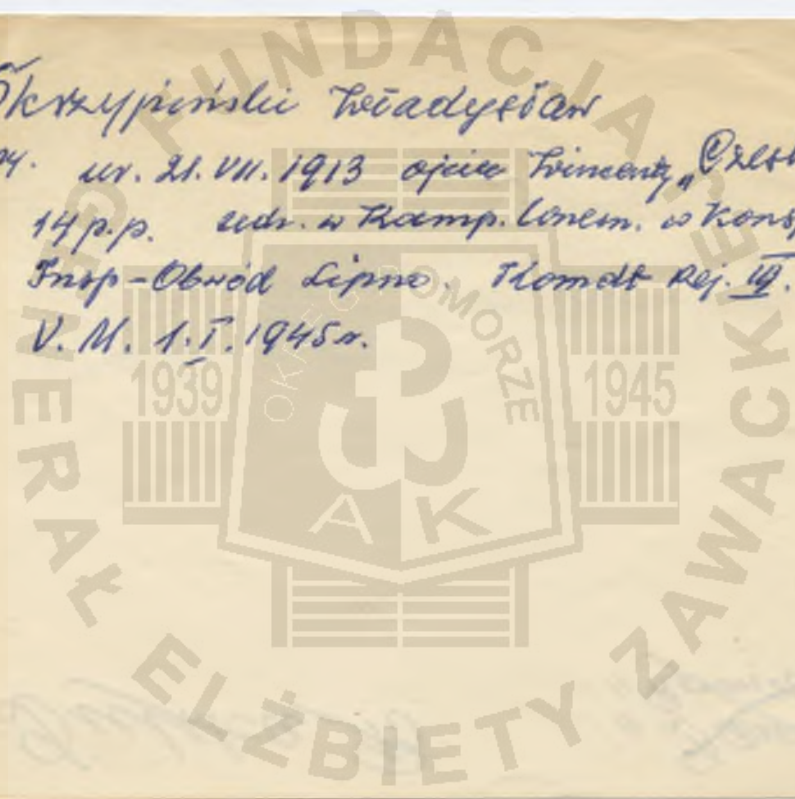 Skrzypiński Władysław
ur. 21.VII.1913 ojciec Wincenty „Czesł
14 p.p. w Kamp. wrześn. w Konsp
Insp-Obwód Lipno. Komdt Rej. III.
V. M. 1.I.1945r.
FUNDACJA
GENERAŁ ELŻBIETY ZAWACKIEJ
OKRĘG POMORZE
1939 1945
A K